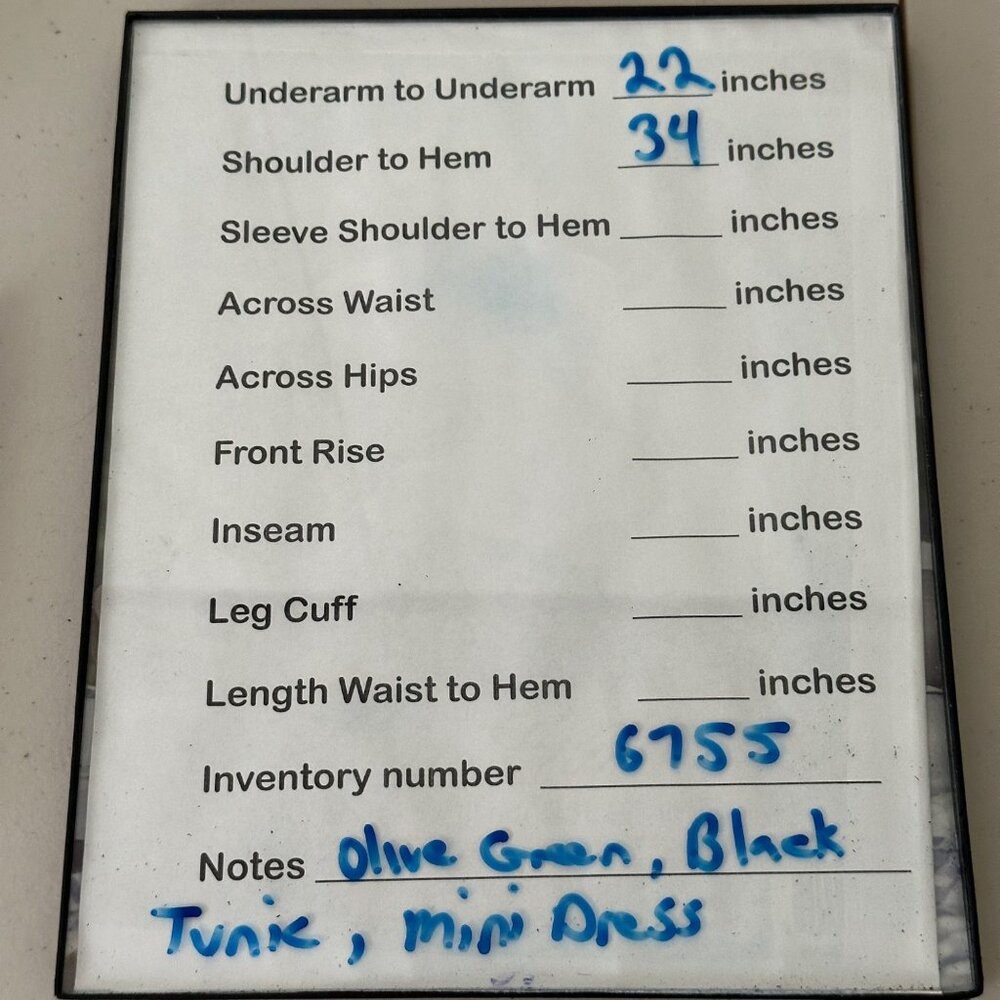 Underarm to Underarm 22 inches
Shoulder to Hem 34 inches
Sleeve Shoulder to Hem ____ inches
Across Waist ____ inches
Across Hips ____ inches
Front Rise ____ inches
Inseam ____ inches
Leg Cuff ____ inches
Length Waist to Hem ____ inches
Inventory number 6755
Notes Olive Green, Black
Tunic, mini Dress